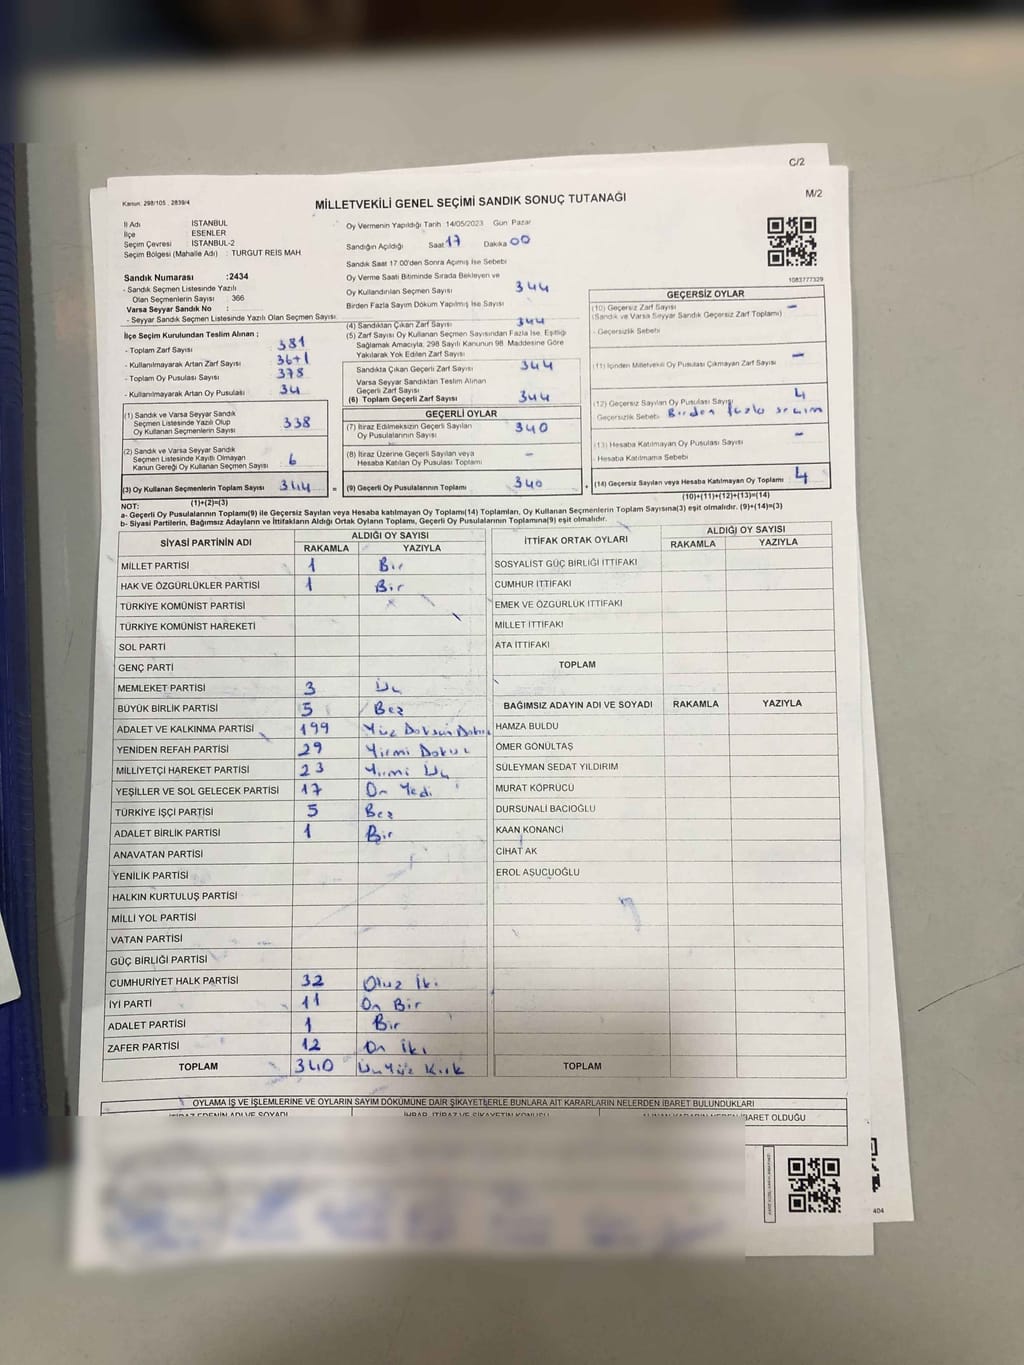 C/2
M/2
Kanun: 298/105 , 2839/4
MİLLETVEKİLİ GENEL SEÇİMİ SANDIK SONUÇ TUTANAĞI
İl Adı : İSTANBUL
İlçe : ESENLER
Seçim Çevresi : İSTANBUL-2
Seçim Bölgesi (Mahalle Adı) : TURGUT REİS MAH
Sandık Numarası :2434
- Sandık Seçmen Listesinde Yazılı
Olan Seçmenlerin Sayısı : 366
Varsa Seyyar Sandık No :
- Seyyar Sandık Seçmen Listesinde Yazılı Olan Seçmen Sayısı:
Oy Vermenin Yapıldığı Tarih 14/05/2023 Gün Pazar
Sandığın Açıldığı Saat 17 Dakika 00
Sandık Saat 17.00'den Sonra Açılmış İse Sebebi
Oy Verme Saati Bitiminde Sırada Bekleyen ve
Oy Kullandırılan Seçmen Sayısı 344
Birden Fazla Sayım Döküm Yapılmış İse Sayısı
1083777329
İlçe Seçim Kurulundan Teslim Alınan ;
- Toplam Zarf Sayısı 381
- Kullanılmayarak Artan Zarf Sayısı 36+1
- Toplam Oy Pusulası Sayısı 378
- Kullanılmayarak Artan Oy Pusulası 34
(1) Sandık ve Varsa Seyyar Sandık
Seçmen Listesinde Yazılı Olup
Oy Kullanan Seçmen Sayısı 338
(2) Sandık ve Varsa Seyyar Sandık
Seçmen Listesinde Kayıtlı Olmayan
Kanun Gereği Oy Kullanan Seçmen Sayısı 6
(3) Oy Kullanan Seçmenlerin Toplam Sayısı 344 =
(4) Sandıktan Çıkan Zarf Sayısı 344
(5) Zarf Sayısı Oy Kullanan Seçmen Sayısından Fazla İse, Eşitliği
Sağlamak Amacıyla, 298 Sayılı Kanunun 98. Maddesine Göre
Yakılarak Yok Edilen Zarf Sayısı
Sandıkta Çıkan Geçerli Zarf Sayısı 344
Varsa Seyyar Sandıktan Teslim Alınan
Geçerli Zarf Sayısı
(6) Toplam Geçerli Zarf Sayısı 344
GEÇERLİ OYLAR
(7) İtiraz Edilmeksizin Geçerli Sayılan
Oy Pusulalarının Sayısı 340
(8) İtiraz Üzerine Geçerli Sayılan veya
Hesaba Katılan Oy Pusulası Toplamı -
(9) Geçerli Oy Pusulalarının Toplamı 340 +
GEÇERSİZ OYLAR
(10) Geçersiz Zarf Sayısı -
(Sandık ve Varsa Seyyar Sandık Geçersiz Zarf Toplamı)
- Geçersizlik Sebebi
(11) İçinden Milletvekili Oy Pusulası Çıkmayan Zarf Sayısı -
(12) Geçersiz Sayılan Oy Pusulası Sayısı 4
Geçersizlik Sebebi Birden fazla seçim
(13) Hesaba Katılmayan Oy Pusulası Sayısı -
- Hesaba Katılmama Sebebi
(14) Geçersiz Sayılan veya Hesaba Katılmayan Oy Toplamı 4
NOT: (1)+(2)=(3)
(10)+(11)+(12)+(13)=(14)
a- Geçerli Oy Pusulalarının Toplamı(9) ile Geçersiz Sayılan veya Hesaba katılmayan Oy Toplamı(14) Toplamları, Oy Kullanan Seçmenlerin Toplam Sayısına(3) eşit olmalıdır. (9)+(14)=(3)
b- Siyasi Partilerin, Bağımsız Adayların ve İttifakların Aldığı Ortak Oyların Toplamı, Geçerli Oy Pusulalarının Toplamına(9) eşit olmalıdır.
SİYASİ PARTİNİN ADI ALDIĞI OY SAYISI
RAKAMLA YAZIYLA
MİLLET PARTİSİ 1 Bir
HAK VE ÖZGÜRLÜKLER PARTİSİ 1 Bir
TÜRKİYE KOMÜNİST PARTİSİ
TÜRKİYE KOMÜNİST HAREKETİ
SOL PARTİ
GENÇ PARTİ
MEMLEKET PARTİSİ 3 Üç
BÜYÜK BİRLİK PARTİSİ 5 Beş
ADALET VE KALKINMA PARTİSİ 199 Yüz Doksan Dokuz
YENİDEN REFAH PARTİSİ 29 Yirmi Dokuz
MİLLİYETÇİ HAREKET PARTİSİ 23 Yirmi Üç
YEŞİLLER VE SOL GELECEK PARTİSİ 17 On Yedi
TÜRKİYE İŞÇİ PARTİSİ 5 Beş
ADALET BİRLİK PARTİSİ 1 Bir
ANAVATAN PARTİSİ
YENİLİK PARTİSİ
HALKIN KURTULUŞ PARTİSİ
MİLLİ YOL PARTİSİ
VATAN PARTİSİ
GÜÇ BİRLİĞİ PARTİSİ
CUMHURİYET HALK PARTİSİ 32 Otuz İki
İYİ PARTİ 11 On Bir
ADALET PARTİSİ 1 Bir
ZAFER PARTİSİ 12 On İki
TOPLAM 340 Üç Yüz Kırk
İTTİFAK ORTAK OYLARI ALDIĞI OY SAYISI
RAKAMLA YAZIYLA
SOSYALİST GÜÇ BİRLİĞİ İTTİFAKI
CUMHUR İTTİFAKI
EMEK VE ÖZGÜRLÜK İTTİFAKI
MİLLET İTTİFAKI
ATA İTTİFAKI
TOPLAM
BAĞIMSIZ ADAYIN ADI VE SOYADI RAKAMLA YAZIYLA
HAMZA BULDU
ÖMER GÖNÜLTAŞ
SÜLEYMAN SEDAT YILDIRIM
MURAT KÖPRÜCÜ
DURSUNALİ BACIOĞLU
KAAN KONANCİ
CİHAT AK
EROL AŞUCUOĞLU
TOPLAM
OYLAMA İŞ VE İŞLEMLERİNE VE OYLARIN SAYIM DÖKÜMÜNE DAİR ŞİKAYETLERLE BUNLARA AİT KARARLARIN NELERDEN İBARET BULUNDUKLARI
İTİRAZ EDENİN ADI VE SOYADI İHBAR, İTİRAZ VE ŞİKAYETİN KONUSU ALINAN KARARIN NEDEN İBARET OLDUĞU
404